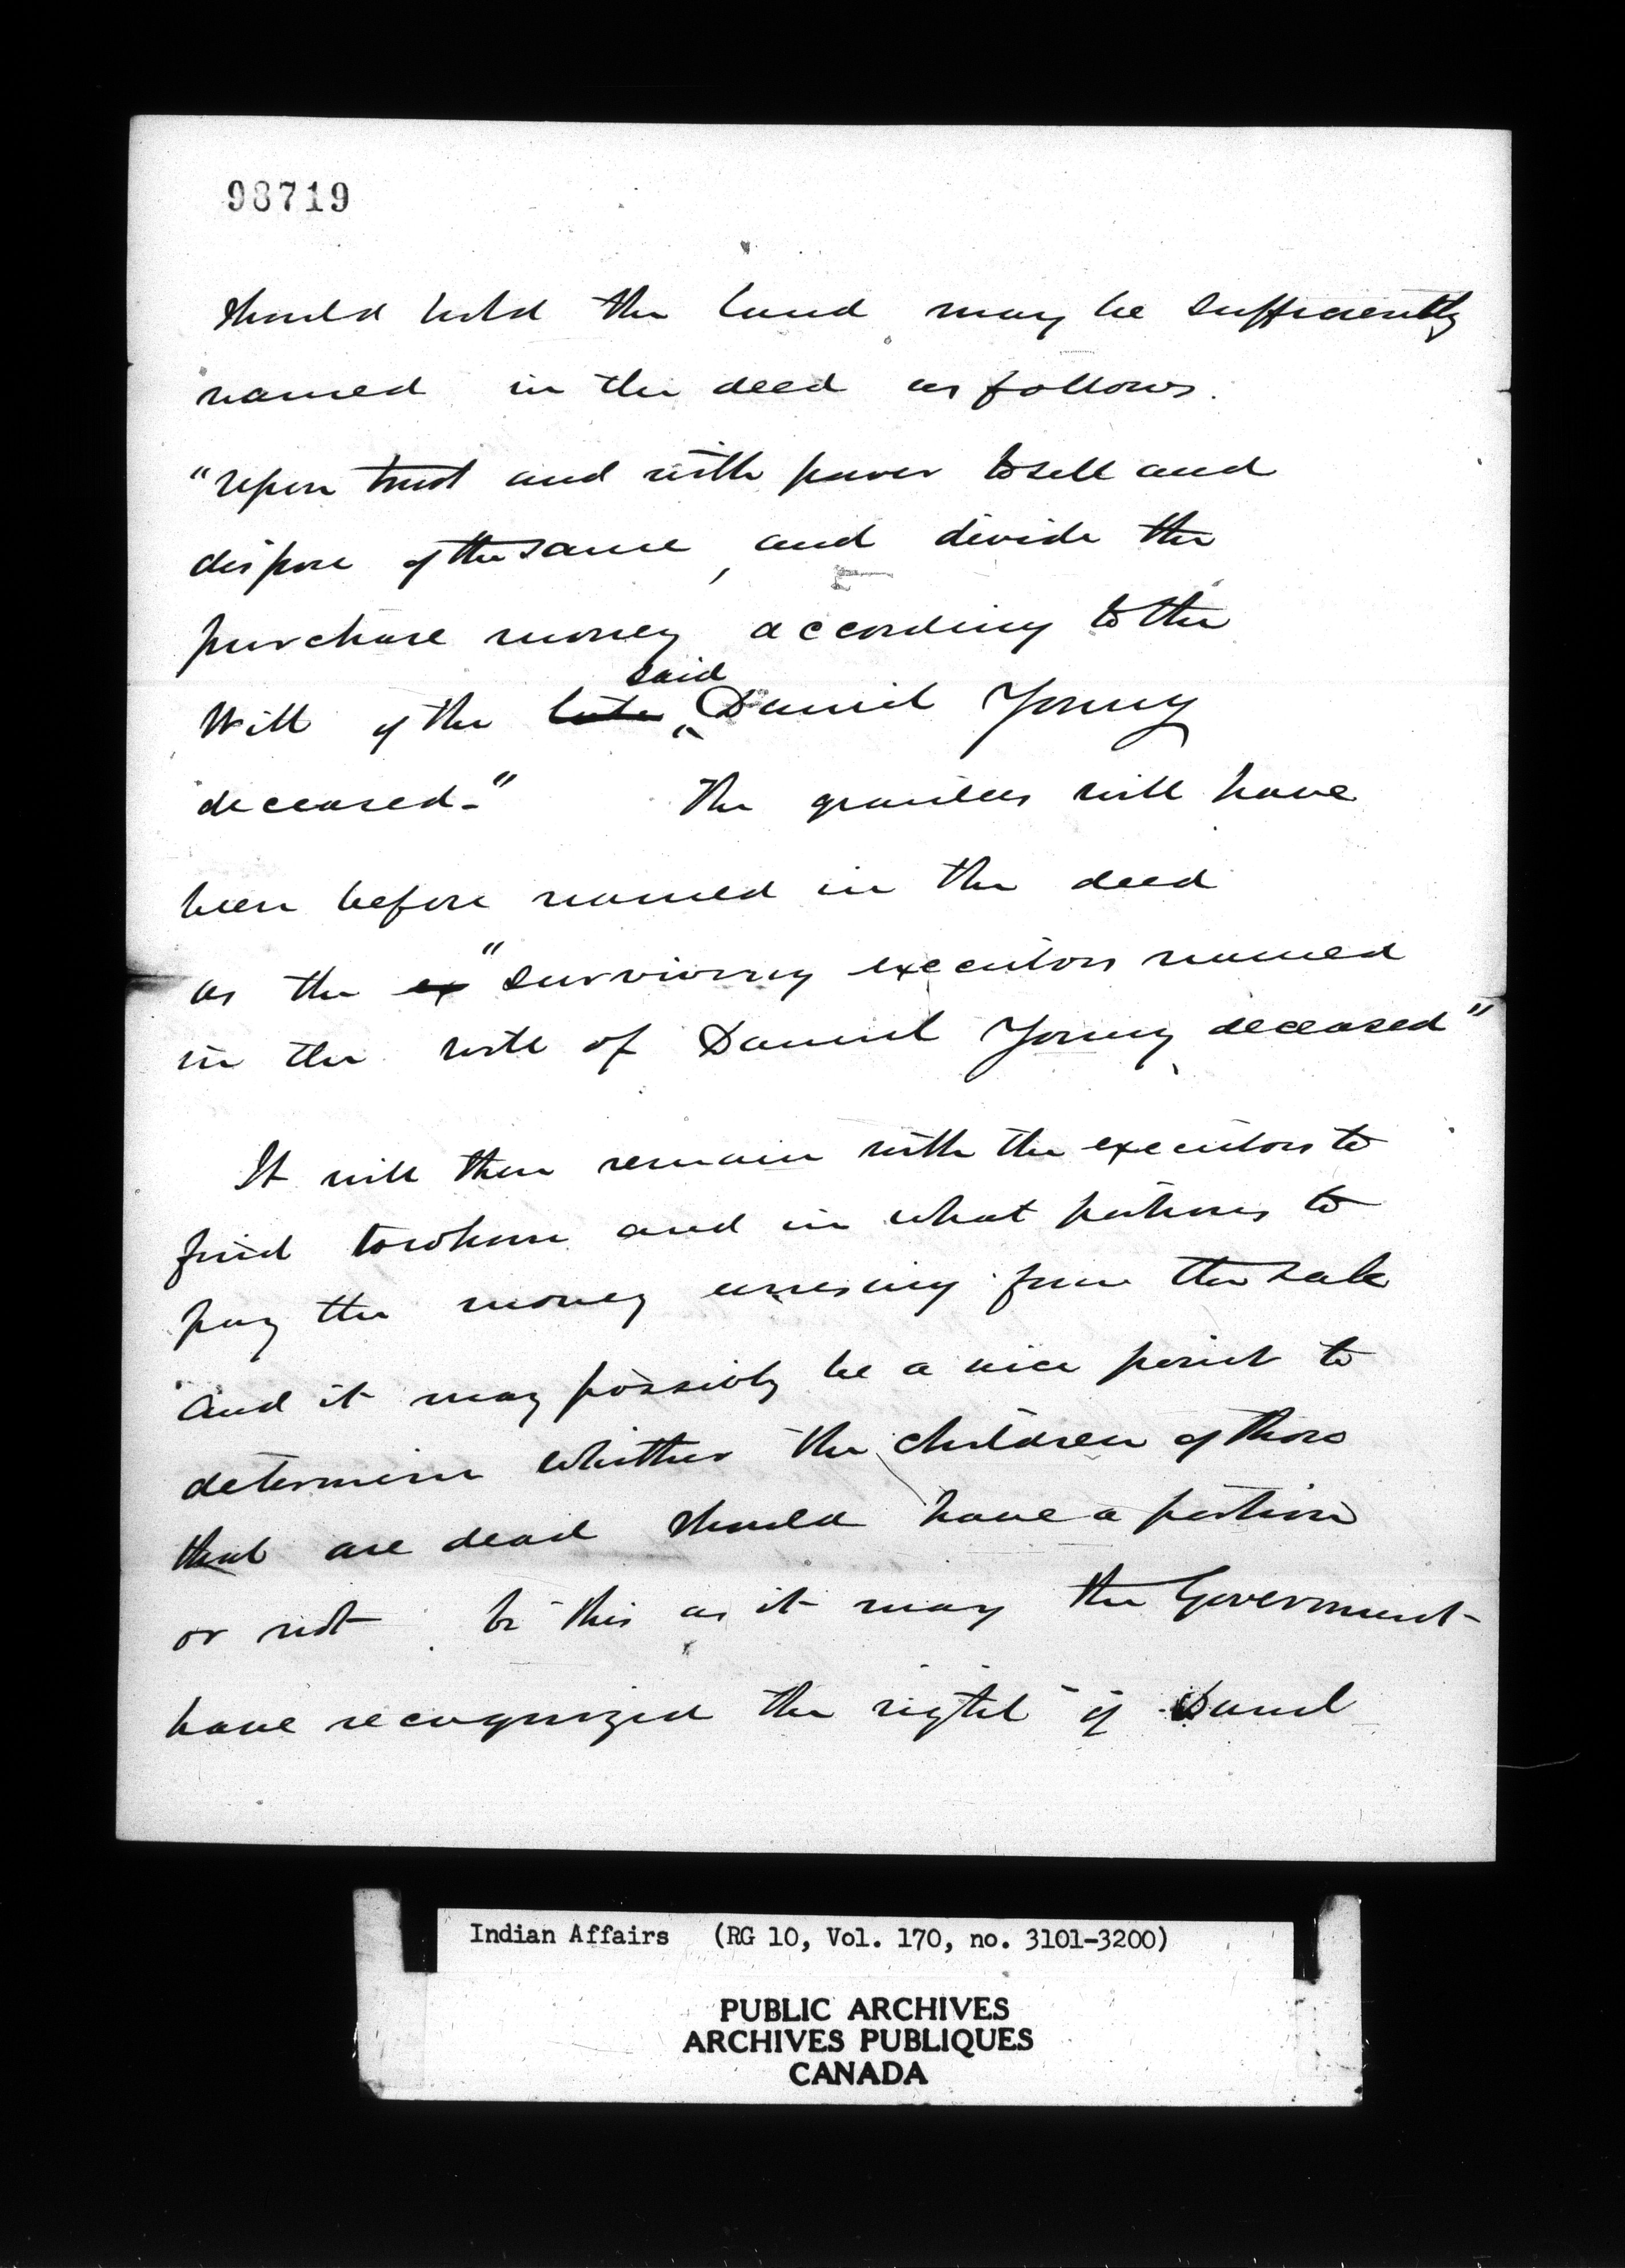 98719
should hold the land may be sufficiently
named in the deed as follows.
"upon trust and with power to sell and
dispose of the same, and divide the
purchase money according to the
said
Will of the late Daniel Young
deceased." The grantees will have
been before named in the deed
as the ex "surviving executors named
in the will of Daniel Young deceased"
It will then remain with the executors to
find to whom and in what portions to
pay the money arising from the sale
and it may possibly be a nice point to
determine whether the children of those
that are dead should have a portion
or not. be this as it may the Government
have recognized the right of Daniel
Indian Affairs (RG 10, Vol. 170, no. 3101-3200)
PUBLIC ARCHIVES
ARCHIVES PUBLIQUES
CANADA